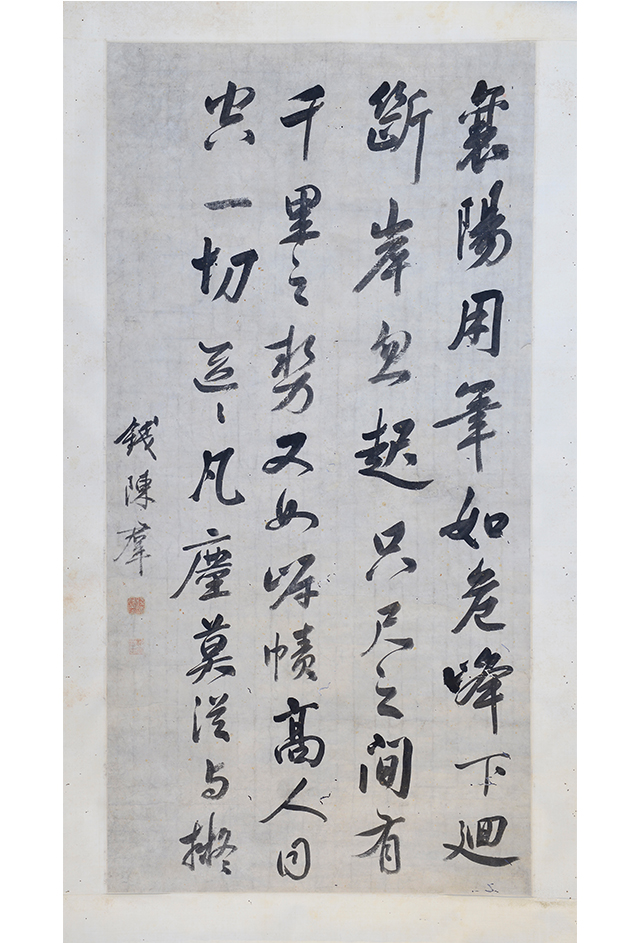 襄陽用筆如危峰下迴
斷岸忽起只尺之間有
千里之勢又如岸幘高人目
空一切區々凡塵莫從与擬
錢陳羣